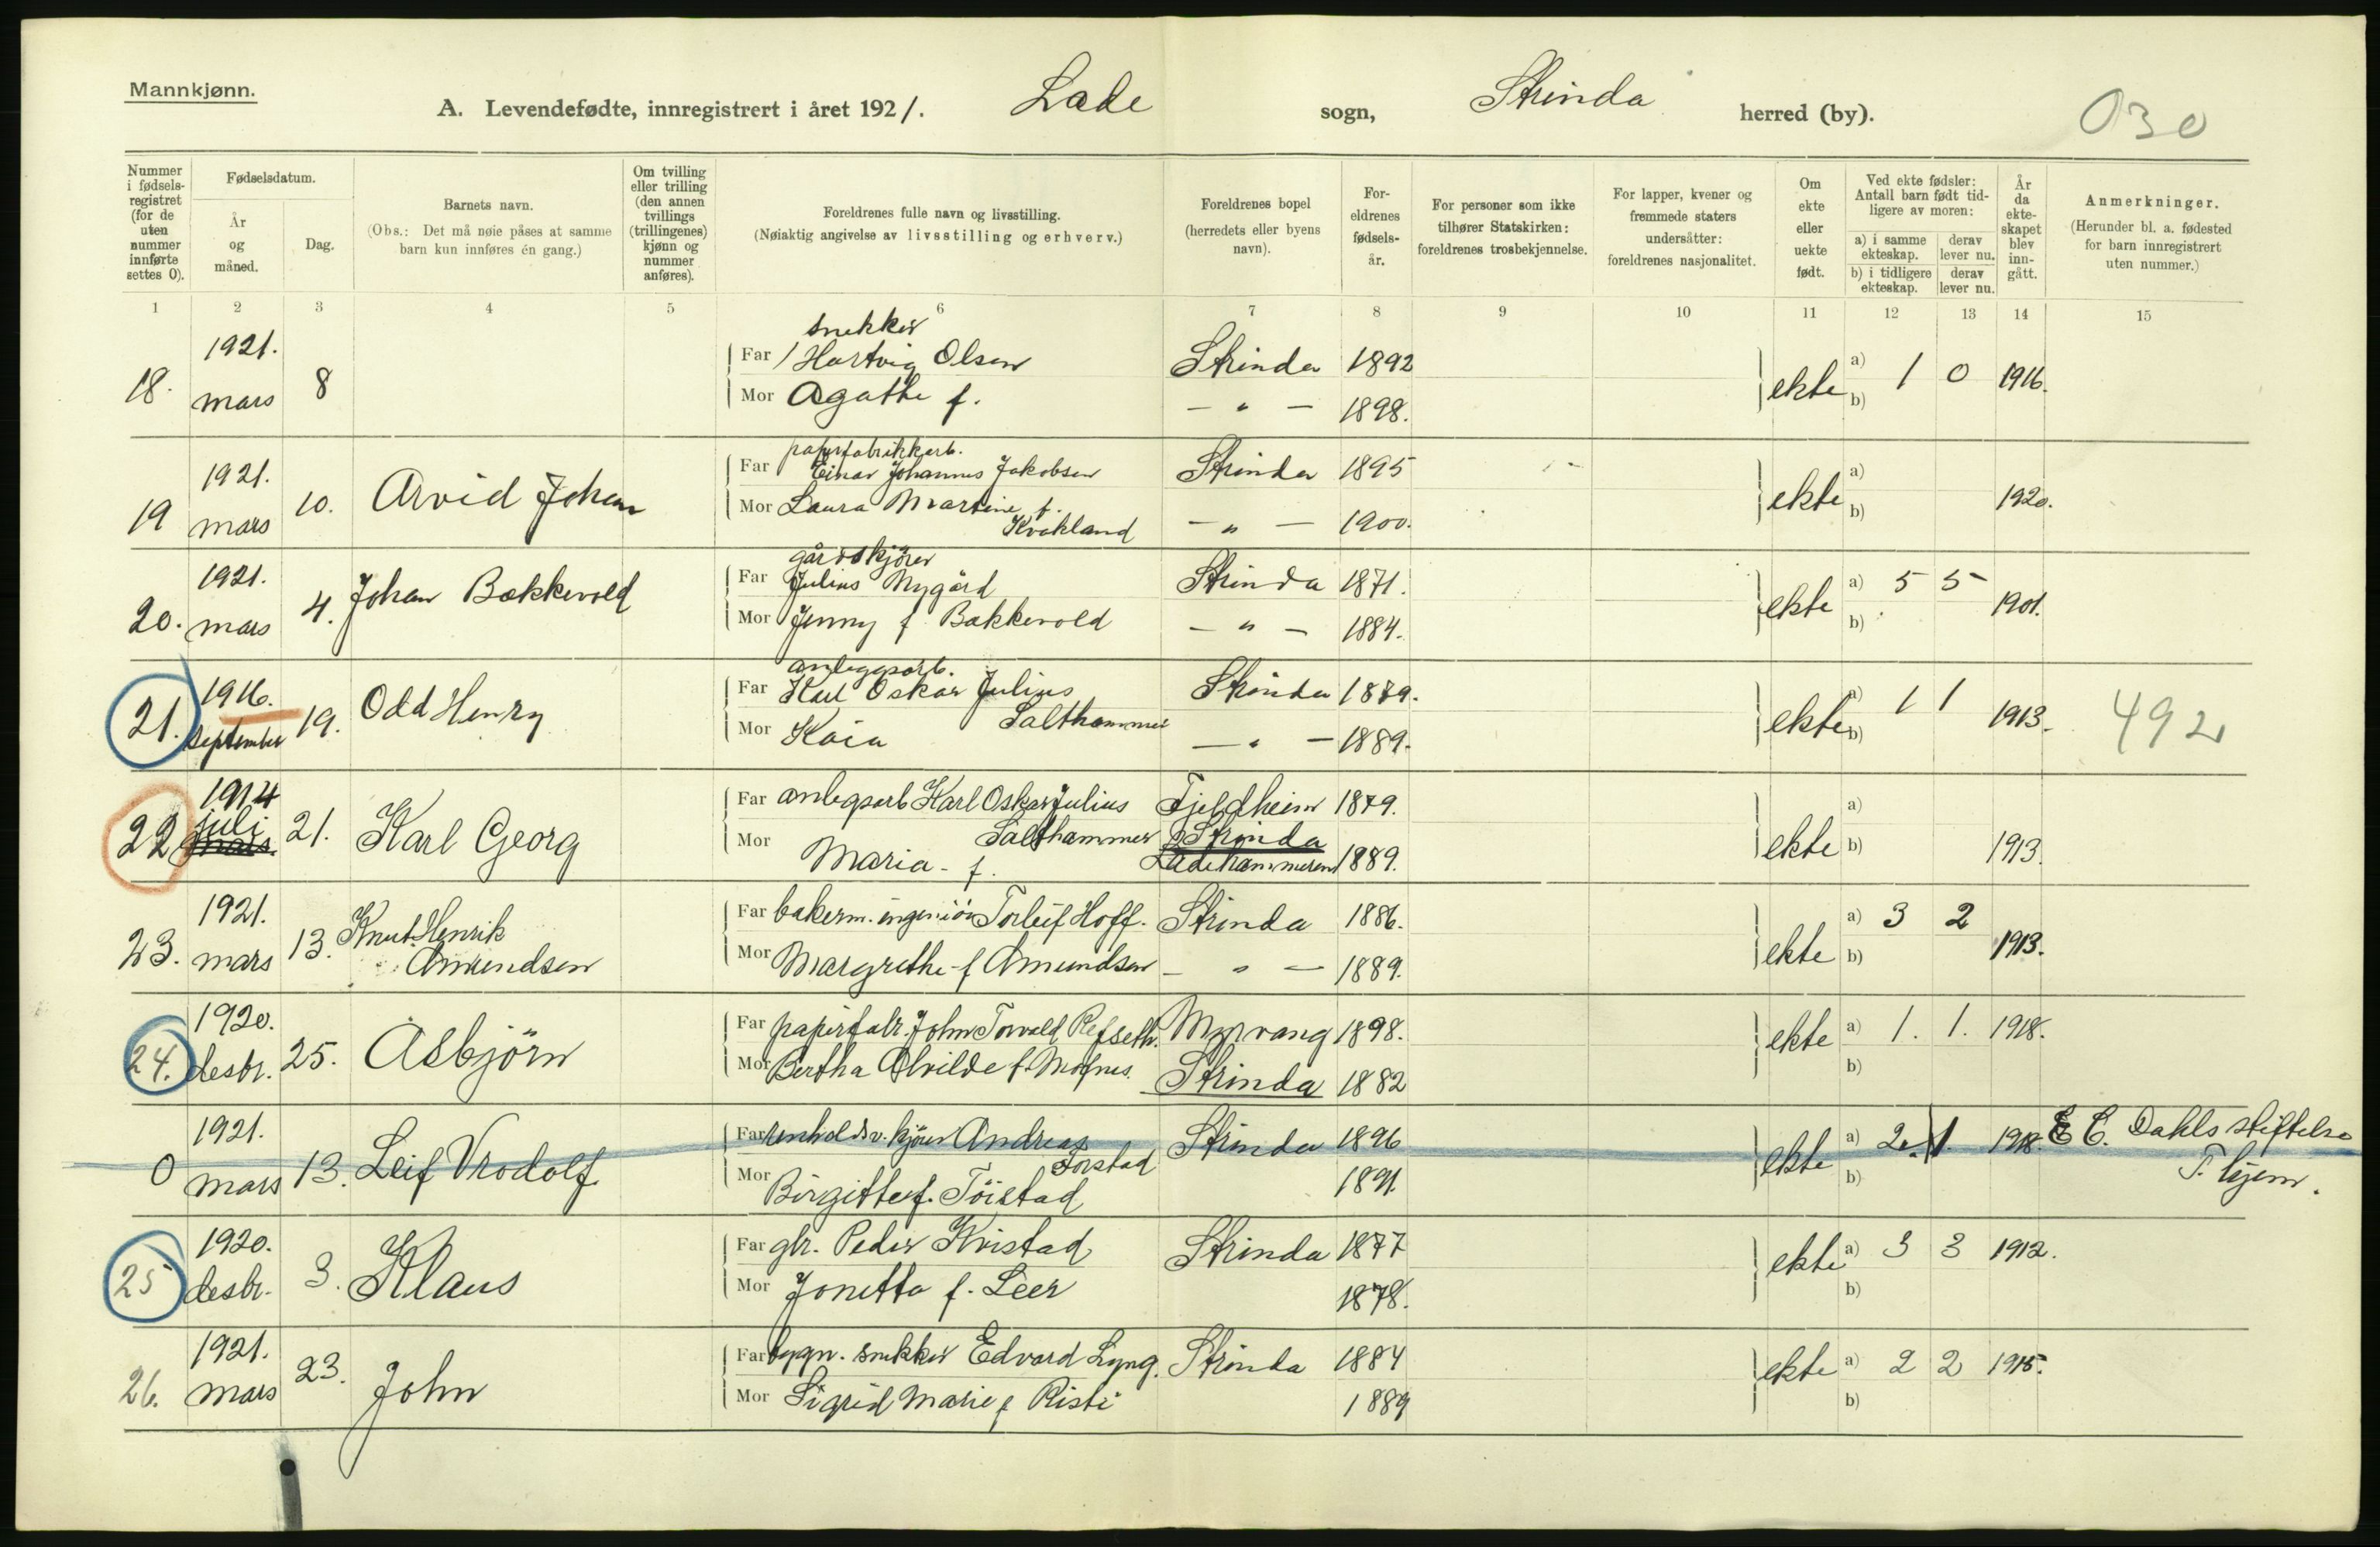 Mannkjønn.
A. Levendefødte, innregistrert i året 1921. Lade sogn, Strinda herred (by). 030
Nummer i fødsels-registret (for de uten nummer innførte settes 0).
Fødselsdatum.
År og måned.
Dag.
Barnets navn.
(Obs.: Det må nøie påses at samme barn kun innføres én gang.)
Om tvilling eller trilling (den annen tvillings (trillingenes) kjønn og nummer anføres).
Foreldrenes fulle navn og livsstilling.
(Nøiaktig angivelse av livsstilling og erhverv.)
Foreldrenes bopel (herredets eller byens navn).
For-eldrenes fødsels-år.
For personer som ikke tilhører Statskirken: foreldrenes trosbekjennelse.
For lapper, kvener og fremmede staters undersåtter: foreldrenes nasjonalitet.
Om ekte eller uekte født.
Ved ekte fødsler: Antall barn født tid-ligere av moren:
a) i samme ekteskap. derav lever nu.
b) i tidligere ekteskap. derav lever nu.
År da ekte-skapet blev inn-gått.
Anmerkninger.
(Herunder bl. a. fødested for barn innregistrert uten nummer.)
1 2 3 4 5 6 7 8 9 10 11 12 13 14 15
snekker
18. 1921. mars 8 Far Hartvig Olsen Strinda 1892 ekte a) 1 0 1916.
Mor Agathe f. — „ — 1898. b)
papirfabrikkarb.
19 1921. mars 10. Arvid Johan Far Einar Johannes Jakobsen Strinda 1895 ekte a) 1920.
Mor Laura Martine f. Kvakland — „ — 1900. b)
gårdskjører
20. 1921. mars 4. Johan Bakkevold Far Julius Nygård Strinda 1871. ekte a) 5 5 1901.
Mor Jenny f. Bakkevold — „ — 1884. b)
anleggsarb.
21. 1916. september 19. Odd Henry Far Karl Oskar Julius Salthammer Strinda 1879. ekte a) 1 1 1913. 492
Mor Kaia — „ — 1889. b)
22 1914 juli mars 21. Karl Georg Far anlegsarb Karl Oskar Julius Salthammer Fjeldheim 1879. ekte a) 1913.
Strinda
Mor Maria - f. Ladehammeren 1889. b)
23. 1921. mars 13. Knut Henrik Amundsen Far bakerm. ingeniör Torleif Hoff. Strinda 1886. ekte a) 3 2 1913.
Mor Margrethe f Amundsen — „ — 1889. b)
24. 1920. desbr. 25. Asbjörn Far papirfabr. John Torvald Refseth. Myrvang 1898. ekte a) 1. 1. 1918.
Mor Bertha Alvilde f. Strinda 1882 b)
0 1921. mars 13. Leif Far renholdsv. kjörer Andreas Strinda 1896 ekte a) 2. 1. 1918. E. C. Dahls stiftelse
Mor Birgitte f. Töistad 1891. b) T. hjem.
25 1920. desbr. 3. Klaus Far gbr. Peder Kvistad Strinda 1877 ekte a) 3 3 1912.
Mor Jonetta f. Leer 1878. b)
26. 1921. mars 23. John Far bygn. snekker Edvard Lyng. Strinda 1884 ekte a) 2 2 1915.
Mor Sigrid Marie f Risti 1889 b)